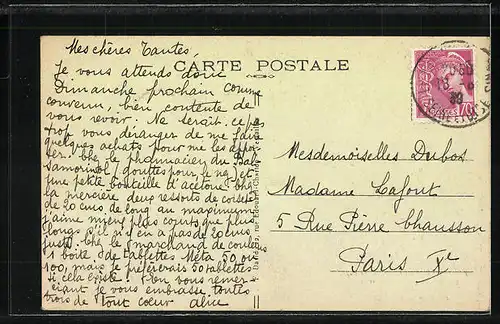 Mes chères Tantes,
CARTE POSTALE
Je vous attends donc
Dimanche prochain comme
convenu, bien contente de
vous revoir. Ne serait-ce pas
trop vous déranger de me faire
quelques achats pour me les appor-
ter. Chez le pharmacien du
(gouttes pour le nez) et
une petite bouteille d'acétone. Chez
la mercière deux ressorts de
de 20 cms de long au maximum
j'aime mieux plus courts que plus
longs s'il n'y en a pas de 20 cms
juste. Chez le marchand de couleurs
1 boîte de tablettes Méta 50 ou
100, mais je préférerais 50 tablettes
si cela existe. J'en vous remer-
ciant je vous embrasse toutes
trois de tout coeur
Mesdemoiselles Dubos
Madame Lafont
5 Rue Pierre Chausson
Paris Xe
70c
39